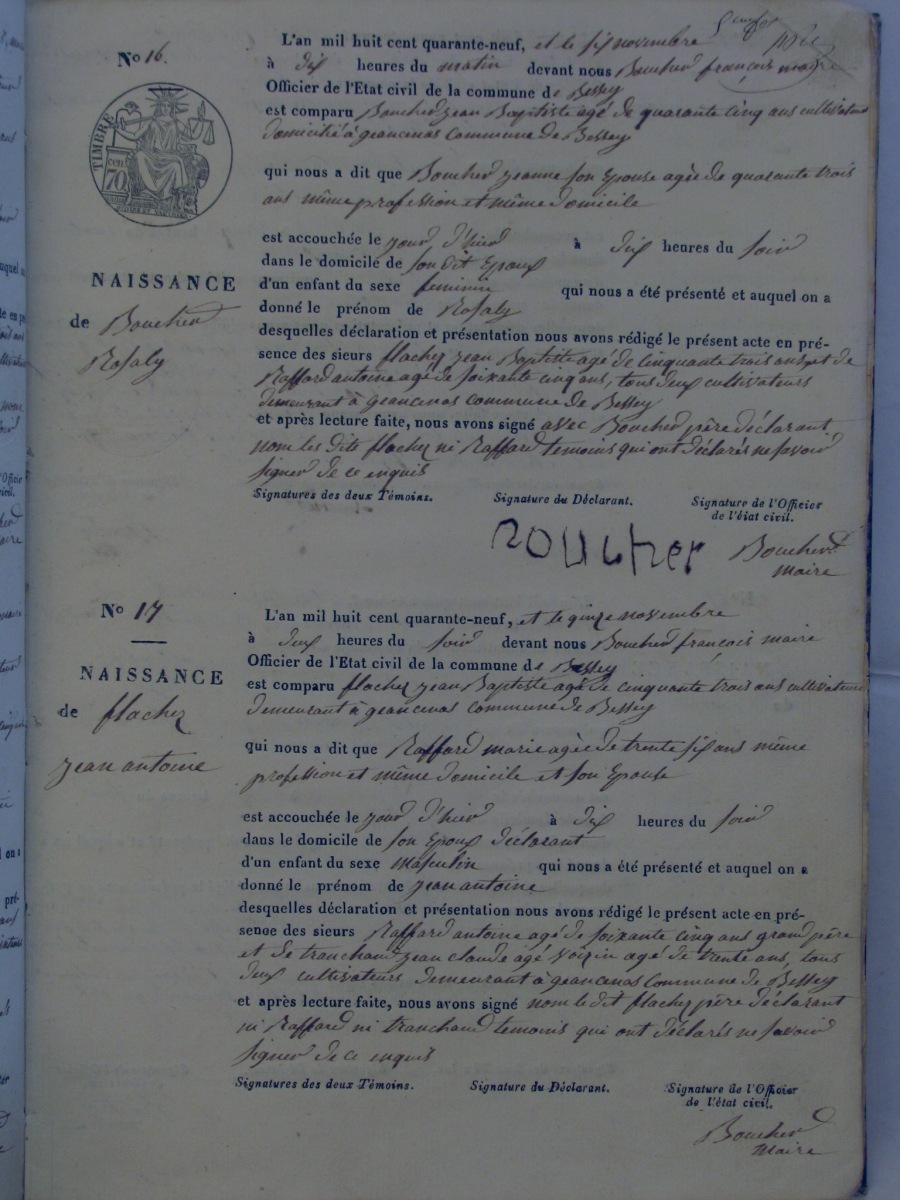 No 16.
TIMBRE
cen
70
NAISSANCE
de Boucher
Rosaly
L'an mil huit cent quarante-neuf, et le six novembre
à dix heures du matin devant nous Boucher françois maire
Officier de l'Etat civil de la commune de Bessey
est comparu Boucher jean Baptiste agé de quarante cinq ans cultivateur
domicilié à geancenas Commune de Bessey
qui nous a dit que Boucher jeanne son Epouse agée de quarante trois
ans même profession et même domicile
est accouchée le jour d'hier à dix heures du soir
dans le domicile de son dit Epoux
d'un enfant du sexe feminin qui nous a été présenté et auquel on a
donné le prénom de Rosaly
desquelles déclaration et présentation nous avons rédigé le présent acte en pré-
sence des sieurs flachez jean Baptiste agé de cinquante trois ans, et de
Raffard antoine agé de soixante cinq ans, tous deux cultivateurs
demeurant à geancenas commune de Bessey
et après lecture faite, nous avons signé avec Boucher père déclarant
nom les dits flachez ni Raffard temoins qui ont déclarés ne savoir
signer de ce enquis
Signatures des deux Témoins. Signature du Déclarant. Signature de l'Officier
de l'état civil.
Boucher
maire
No 17
NAISSANCE
de flachez
jean antoine
L'an mil huit cent quarante-neuf, et le qinze novembre
à deux heures du soir devant nous Boucher francois maire
Officier de l'Etat civil de la commune de Bessey
est comparu flachez jean Baptiste agé de cinquante trois ans cultivateur
demeurant à geancenas commune de Bessey
qui nous a dit que Raffard marie agée de trente six ans même
profession et même domicile et son Epouse
est accouchée le jour d'hier à dix heures du soir
dans le domicile de son Epoux déclarant
d'un enfant du sexe masculin qui nous a été présenté et auquel on a
donné le prénom de jean antoine
desquelles déclaration et présentation nous avons rédigé le présent acte en pré-
sence des sieurs Raffard antoine agé de soixante cinq ans grand père
et de tranchand jean claude agé voizin agé de trente ans, tous
deux cultivateurs demeurant à geancenas Commune de Bessey
et après lecture faite, nous avons signé nom le dit flachez père déclarant
ni Raffard ni tranchand temoins qui ont déclarés ne savoir
signer de ce enquis
Signatures des deux Témoins. Signature du Déclarant. Signature de l'Officier
de l'état civil.
Boucher
maire